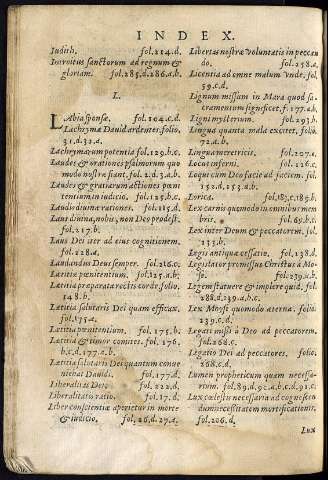 INDEX.
Judith. fol.214.d.
Introitus sanctorum ad regnum &
gloriam. fol.285.d.286.a.b.
L.
LAbia sponsæ. fol.104.c.d.
Lachrymæ Dauid ardentes. folio.
31.d.32.a.
Lachrymarum potentia fol.129.b.c.
Laudes & orationes psalmorum quo
modo nostræ siant. fol.2.d.3.a.b.
Laudes & gratiarum actiones pœni
tentium in iudicio. fol.125.b.c.
Laudis diuinæ rationes. fol.215.d.
Laus diuina, nobis, non Deo prodest.
fol.217.b.
Laus Dei iter ad eius cognitionem.
fol.228.a.
Laudandus Deus semper. fol.216.c.
Lætitia pœnitentium. fol.125.a.b.
Lætitia præparata rectis corde. folio.
148.b.
Lætitia salutaris Dei quam efficax.
fol.175.a.
Lætitia pœnitentium. fol.175.b.
Lætitia & timor comites. fol.176.
b.c.d.177.a.b.
Lætitia salutaris Dei quantum conue
niebat Dauidi. fol.177.d.
Liberalitas Dei. fol.222.d.
Liberalitatis ratio. fol.17.d.
Liber conscientiæ aperietur in morte
& iudicio. fol.26.d.27.a.
Libertas nostræ voluntatis in peccan
do. fol.258.a.
Licentia ad omne malum vnde. fol.
59.c.d.
Lignum missum in Mara quod sa-
cramentum significet. f.177.a.b.
Ligni mysterium. fol.293.b.
Lingua quanta mala excitet. folio.
72.a.b.
Lingua meretricis. fol.207.a.
Locus inferni. fol.226.c.
Loqui cum Deo facie ad faciem. fol.
152.d.153.a.b.
Lorica. fol.185.c.185.b.
Lex carnis quomodo in omnibus mem
bris. fol.69.b.c.
Lex inter Deum & peccatorem. fol.
133.b.
Legis antiquæ cessatio. fol.138.d.
Legislator promissus Christus à Mo-
se. fol.239.a.b.
Legem statuere & implere quid. fol.
288.d.239.a.b.c.
Lex Moysi quomodo æterna. folio.
239.c.d.
Legati missi à Deo ad peccatorem.
fol.268.c.
Legatio Dei ad peccatores. folio.
268.c.d.
Lumen propheticum quam necessa-
rium. fol.89.d.91.c.a.b.c.91.b.
Lux cœlestis necessaria ad cognoscen
dum necessitatem mortificationis.
fol.206.d.
Lux